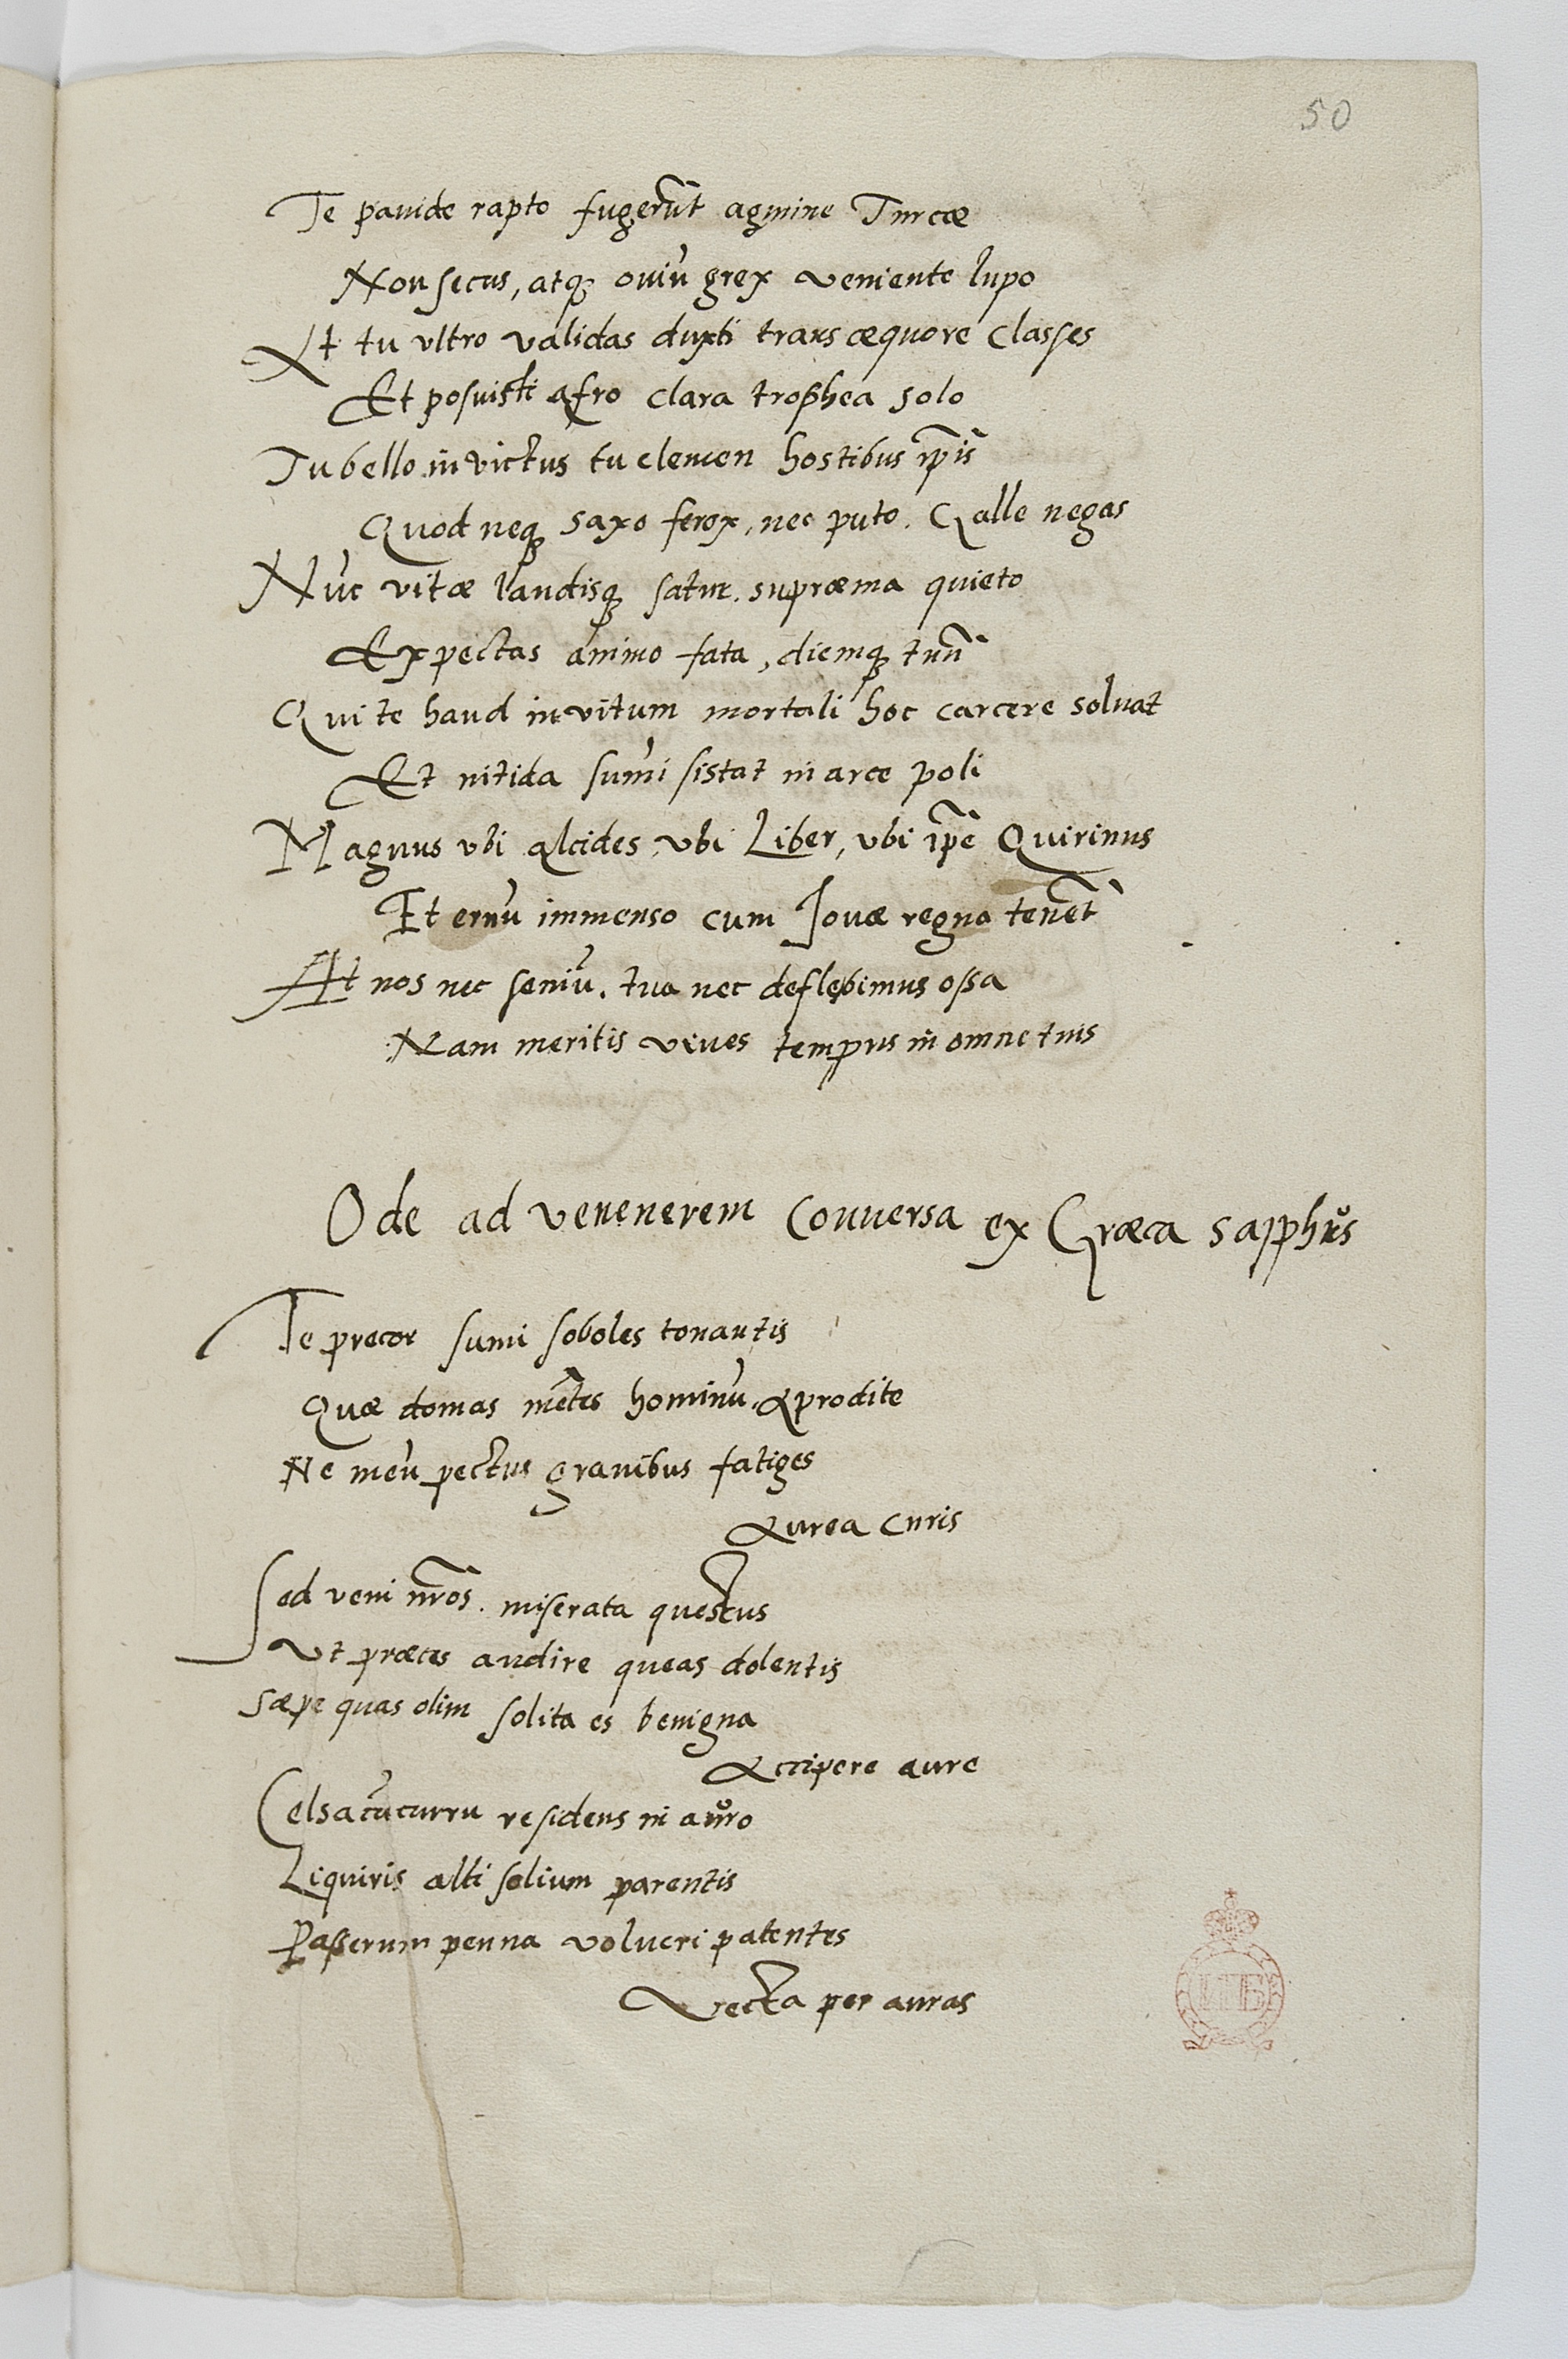 50
Te pauide rapto fugerũt agmine Turcæ
Non secus, atq; ouiũ grex veniente lupo
At tu vltro validas duxti trans æquore classes
Et posuisti afro clara trophea solo
Tu bello invictus tu clemen hostibus ip̃is
Quod neq; saxo ferox, nec puto. Galle negas
Nũc vitæ laudisq; satur. supræma quieto
Expectas animo fata, diemq; tuũ
Qui te haud invitum mortali hoc carcere soluat
Et nitida sum̃i sistat in arce poli
Magnus vbi alcides, vbi Liber, vbi ip̃e Quirinus
Eternũ immenso cum Jouæ regna tenẽt
At nos nec seniũ. tua nec deflebimus ossa
Nam meritis viues tempus in omne tuis
Ode ad venenerem Conuersa ex Græca Sapphus
Te precor sum̃i soboles tonantis
Quæ domas mẽtes hominũ. Aprodite
Ne meũ pectus grauibus fatiges
Aurea curis
Sed veni nr̃os. miserata questus
Ut præces audire queas dolentis
Sæpe quas olim solita es benigna
Accipere aure
Celsa cũ curru residens in auro
Liquiris alti solium parentis
Passerum penna volucri patentes
Vecta per auras
ИПБ